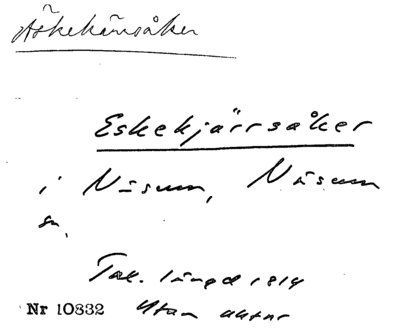 Äskekärrsåker
Eskekjärrsåker
i Näsum, Näsum
sn.
Tax. längd 1814
Nr 10832 Utan aktnr